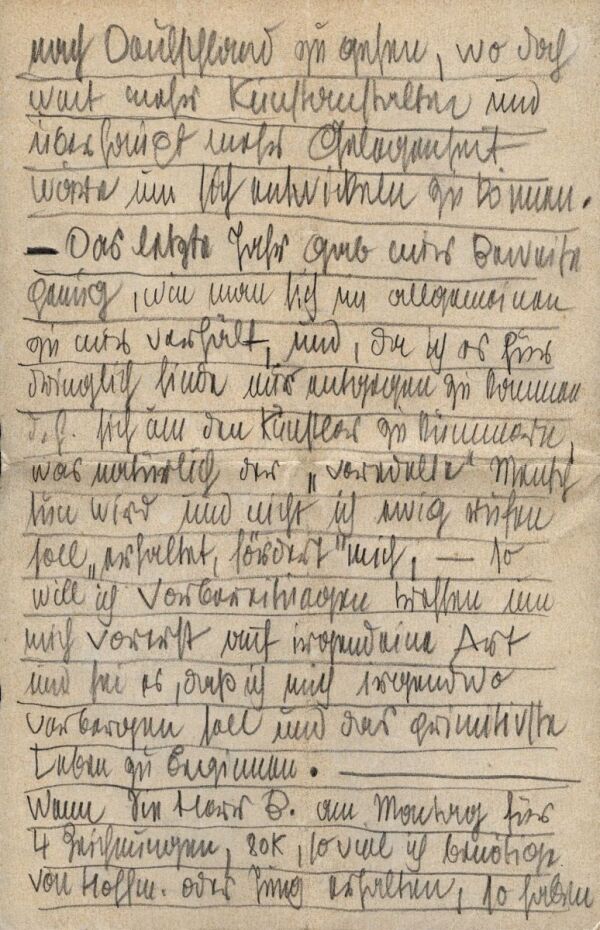 nach Deutschland zu gehen, wo doch
weit mehr Kunstanstalten und
überhaupt mehr Gelegenheit
wäre um sich entwickeln zu können.
— Das letzte Jahr gab mir Beweise
genug, wie man sich im allgemeinen
zu mir verhält, und, da ich es für
dringlich finde mir entgegen zu kommen
d. h. sich um den Künstler zu kümmern,
was natürlich der „veredelte" Mensch
tun wird und nicht ich ewig rufen
soll „erhaltet, fördert" mich, — so
will ich Vorbereitungen treffen um
mich vorerst auf irgendeine Art
und sei es, daß ich mich irgendwo
verbergen soll und das primitivste
Leben zu beginnen. —
Wenn Sie Herr B. am Montag für
4 Zeichnungen, 80K, soviel ich benötige
von Hoffm. oder Jung erhalten, so haben